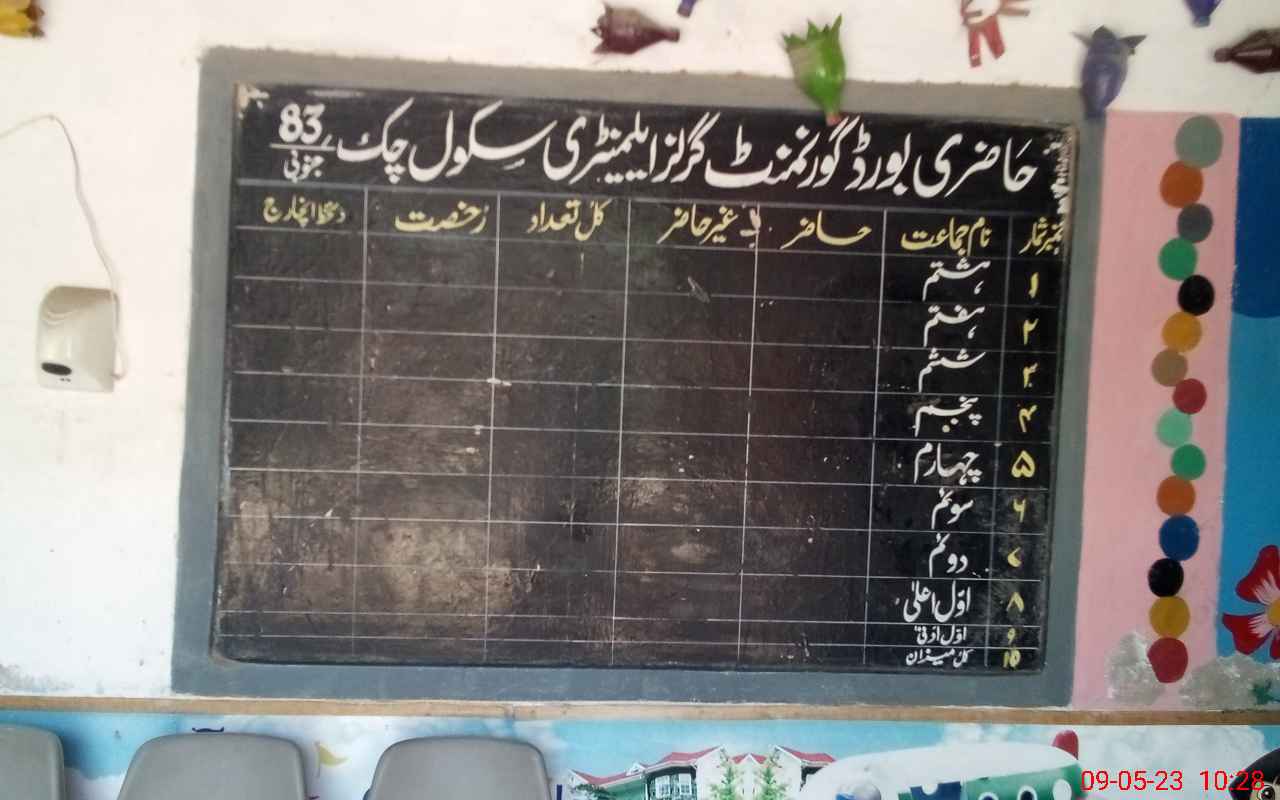 حاضری بورڈ گورنمنٹ گرلز ایلیمنٹری سکول چک 83 جنوبی
نمبر شمار نام جماعت حاضر غیر حاضر کل تعداد رخصت دستخط انچارج
۱ ہشتم
۲ ہفتم
۳ ششم
۴ پنجم
۵ چہارم
۶ سوئم
۷ دوئم
۸ اوّل اعلیٰ
۹ اوّل ادنیٰ
۱۵ کل میزان
09-05-23 10:28